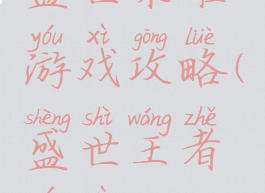 yóu xì gōng lüè
游戏攻略(
shèng shì wáng zhě
盛世王者